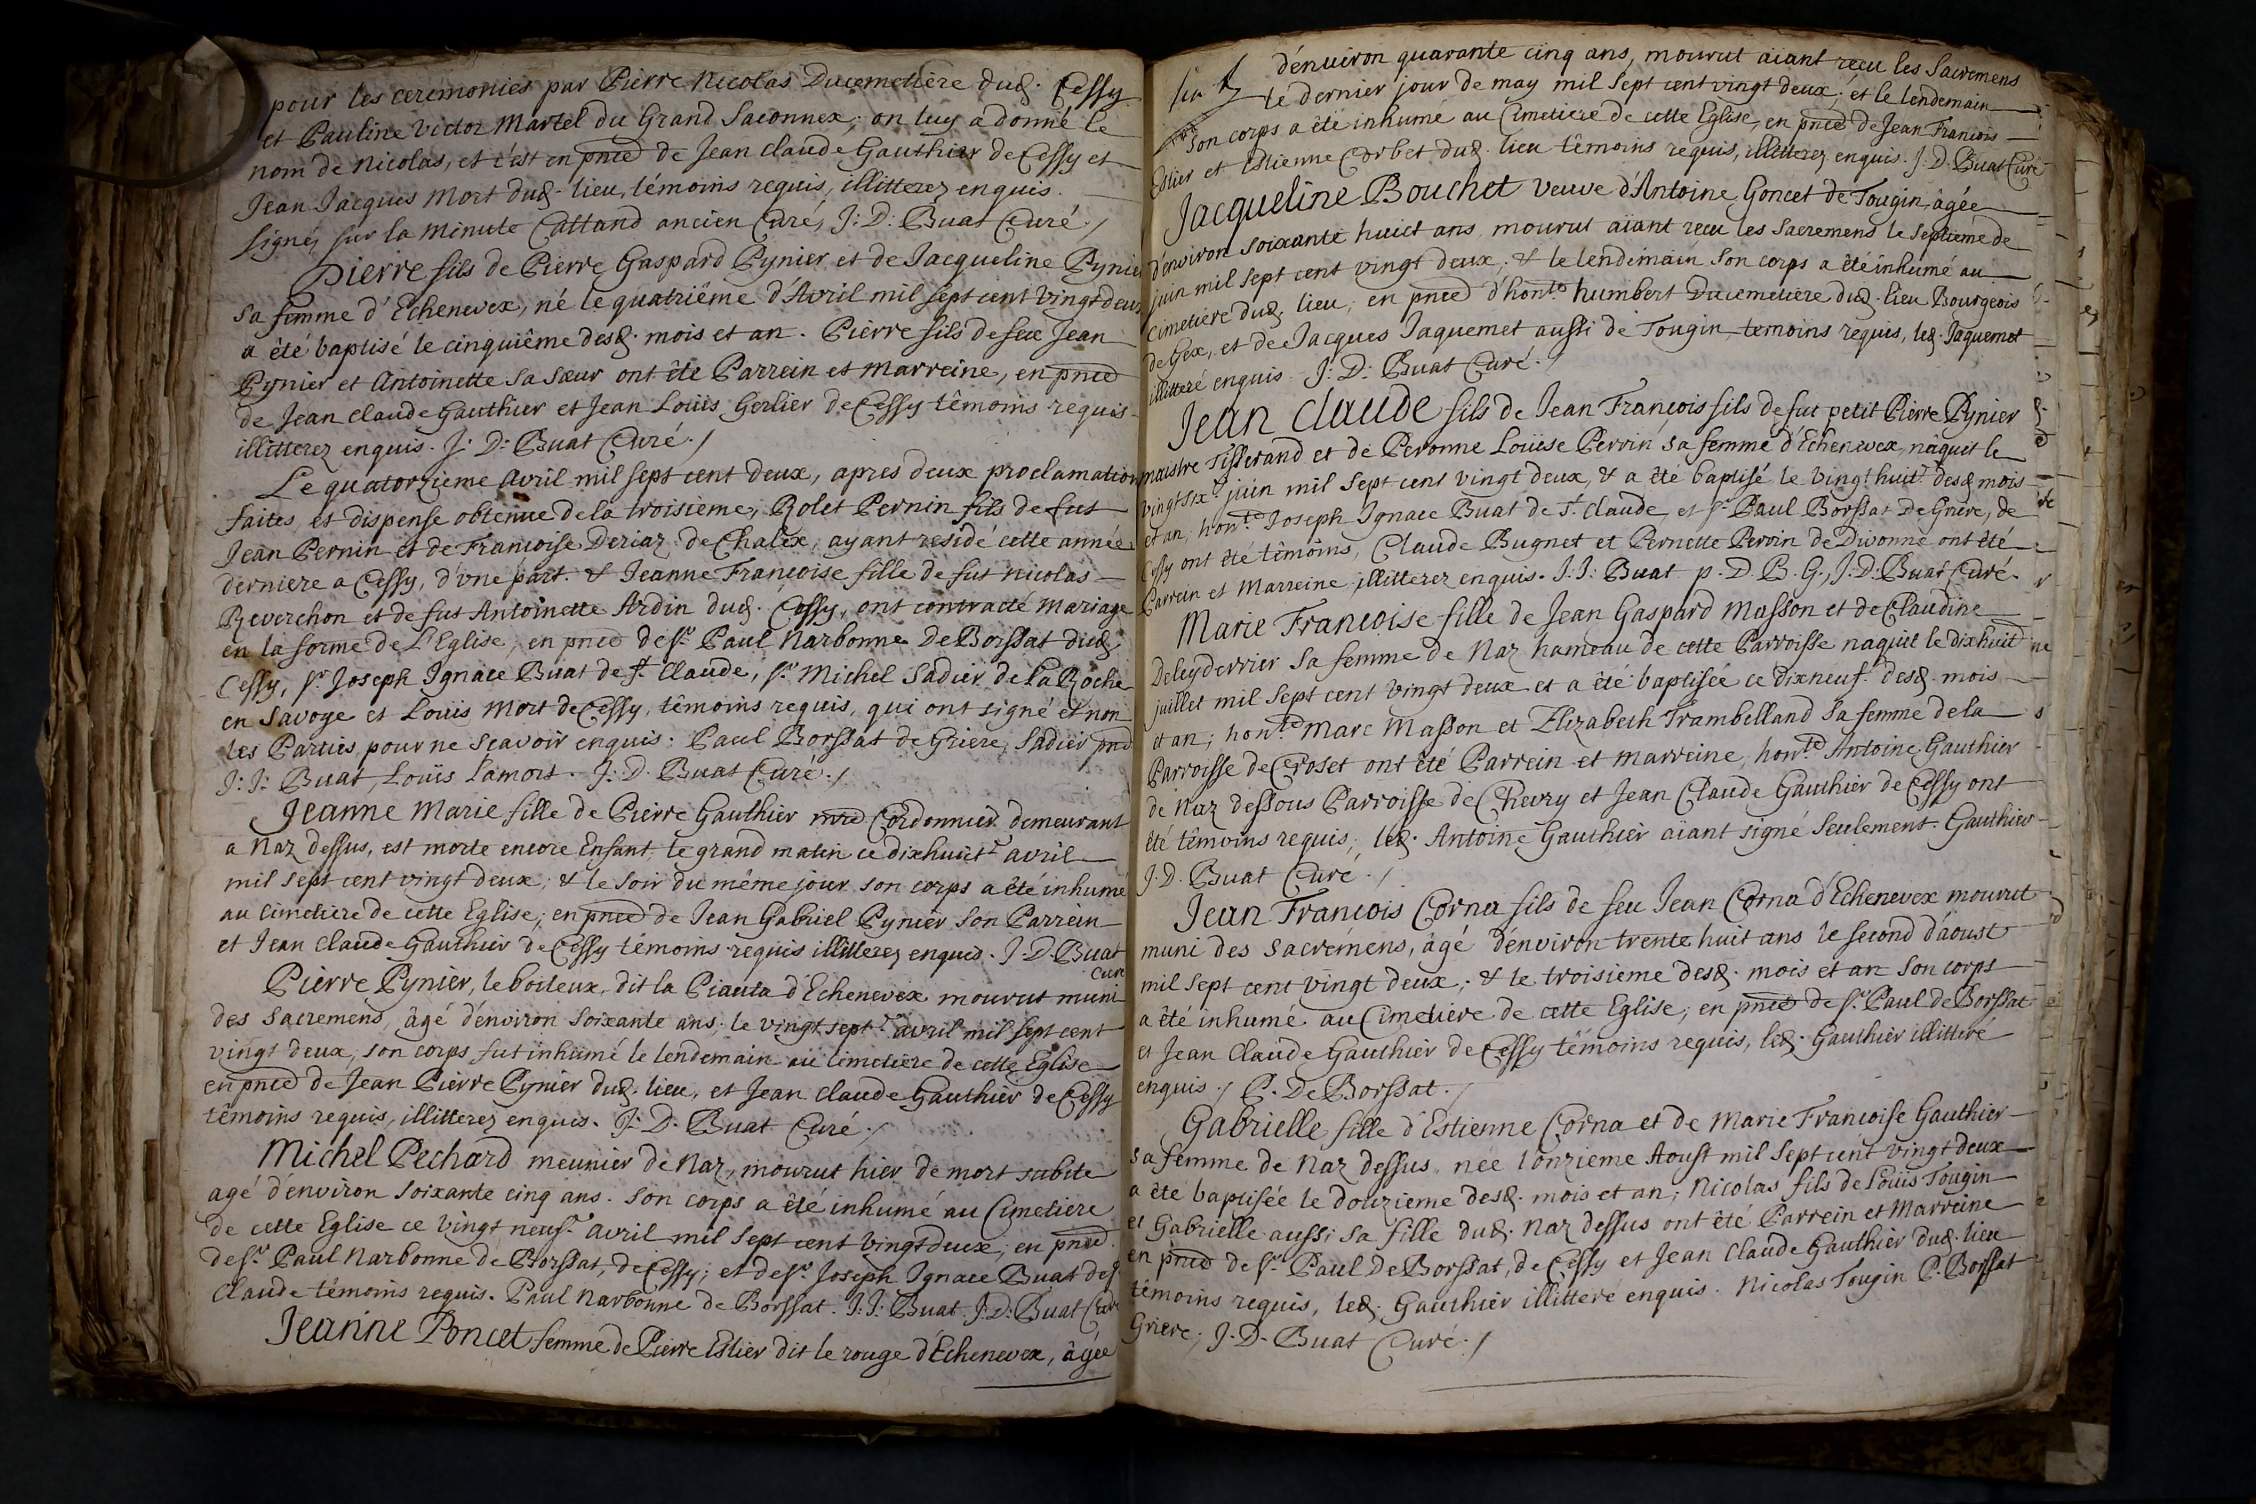 pour les ceremonies par Pierre Nicolas Ducemetiere dud. Cessy
et Pauline Victoz Martel du Grand Saconnex; on luy a donné le
nom de Nicolas, et c'est en pnce de Jean Claude Gauthier de Cessy et
Jean Jacques Mort dud. lieu, témoins requis, illitterez enquis.
signé, sur la minute Cattand ancien Curé, J: D: Buat Curé./
Pierre fils de Pierre Gaspard Pynier et de Jacqueline Pynier
sa femme d'Echenevex, né le quatriême d'Avril mil sept cent vingt deux
a êté baptisé le cinquiême desd. mois et an. Pierre fils de feu Jean
Pynier et Antoinette sa sœur ont ête Parrein et marreine, en pnce
de Jean Claude Gauthier et Jean Louïs Gerlier de Cessy têmoins requis
illitterez enquis. J: D: Buat Curé./
Le quatorzieme Avril mil sept cent deux, apres deux proclamations
faites et dispense obtenue de la troisieme, Rolet Pernin fils de fut
Jean Pernin et de Francoise Deriaz de Chalex, ayant residé cette année
derniere a Cessy, d'vne part. & Jeanne Francoise fille de fut Nicolas
Reverchon et de fut Antoinette Ardin dud. Cessy, ont contracté mariage
en la forme de L'Eglise, en pnce de sr. Paul Narbonne De Borssat dud.
Cessy, sr. Joseph Ignace Buat de St. Claude, sr. Michel Sadier de la Roche
en Savoye et Louïs Mort de Cessy, têmoins requis, qui ont signé et non
les Parties pour ne scavoir enquis: Paul Borssat de Griere, Sadier pnt
J: J: Buat, Louïs Lamort. J: D. Buat Curé./
Jeanne Marie fille de Pierre Gauthier mre Cordonnier demeurant
a Naz dessus, est morte encore Enfant le grand matin ce dixhuitr. avril
mil sept cent vingt deux; & le soir du même jour son corps a êté inhumé
au cimetiere de cette Eglise, en pnce de Jean Gabriel Pynier son Parrein
et Jean Claude Gauthier de Cessy têmoins requis illitterez enquis. J. D. Buat
Curé
Pierre Pynier, le boiteux, dit la Piauta d'Echenevex mourut muni
des sacremens, âgé d'environ soixante ans, le vingt septr. avril mil sept cent
vingt deux, son corps fut inhumé le lendemain au cimetiere de cette Eglise
en pnce de Jean Pierre Pynier dud. lieu, et Jean Claude Gauthier de Cessy
têmoins requis, illitterez enquis. J: D. Buat Curé./
Michel Pechard meunier de Naz, mourut hier de mort subite
agé d'environ soixante cinq ans. son corps a êté inhumé au Cimetiere
de cette Eglise ce vingt neufr. avril mil sept cent vingt deux; en pnce
de sr. Paul Narbonne de Borssat, de Cessy; et de sr. Joseph Ignace Buat de S
Claude témoins requis. Paul Narbonne de Borssat. J: J: Buat. J: D: Buat Curé
Jeanne Poncet femme de Pierre Estier dit le rouge d'Echenevex, âgée
d'environ quarante cinq ans, mourut aïant recu les Sacremens
le dernier jour de may mil sept cent vingt deux; et le lendemain
son corps a êté inhumé au Cimetiere de cette Eglise, en pnce de Jean Francois
Estier et Estienne Corbet dud. lieu têmoins requis, illitterez enquis. J. D. Buat Curé
Jacqueline Bouchet veuve d'Antoine Goncet de Tougin, âgée
d'environ soixante huict ans mourut aïant recu les Sacremens le septieme de
juin mil sept cent vingt deux; & le lendemain son corps a êté inhumé au
cimetiere dud. lieu, en pnce d'honte. humbert Ducemetiere dud. lieu Bourgeois
de Gex, et de Jacques Jaquemet aussi de Tougin temoins requis, led. Jaquemet
illitteré enquis J: D: Buat Curé./
Jean Claude fils de Jean François fils de fut petit Pierre Pynier
maistre Tisserand et de Peronne Louïse Perrin sa femme d'Echenevex, nâquit le
vingtsixr. juin mil sept cent vingt deux, & a êté baptisé le vingt huitr. desd. mois
et an, honte. Joseph Ignace Buat de St. Claude et sr. Paul Borssat de Griere, de
Cessy ont êté têmoins, Claude Bugnet et Pernette Perrin de Divonne ont êté
Parrein et Marreine illitterez enquis. J. J: Buat p. D. B. G., J. D. Buat Curé.
Marie Francoise fille de Jean Gaspard Masson et de Claudine
Deleyderrier sa femme de Naz hameau de cette Parroisse naquit le dixhuit
juillet mil sept cent vingt deux et a êté baptisée ce dixneufr. desd. mois
et an; honte. Marc Masson et Elizabeth Trambelland sa femme de la
Parroisse de Croset ont êté Parrein et marreine, honte. Antoine Gauthier
de Naz dessous Parroisse de Chevry et Jean Claude Gauthier de Cessy ont
êté têmoins requis, led. Antoine Gauthier aïant signé seulement. Gauthier
J. D. Buat Curé./
Jean Francois Corna fils de feu Jean Corna d'Echenevex mourut
muni des sacremens, âgé d'environ trente huit ans le second d'aoust
mil sept cent vingt deux; & le troisieme desd. mois et an son corps
a êté inhumé au Cimetiere de cette Eglise; en pnce de sr. Paul de Borssat
et Jean Claude Gauthier de Cessy têmoins requis, led. Gauthier illitteré
enquis./ P. De Borssat./
Gabrielle fille d'Estienne Corna et de Marie Francoise Gauthier
sa femme de Naz dessus née l'onzieme Aoust mil sept cent vingt deux
a êté baptisée le douzieme desd. mois et an; Nicolas fils de Louïs Tougin
et Gabrielle aussi sa fille dud. Naz dessus ont êté Parrein et Marreine
en pnce de sr. Paul De Borssat, de Cessy et Jean Claude Gauthier dud. lieu
têmoins requis, led. Gauthier illitteré enquis. Nicolas Tougin P. Borssat
Griere, J. D. Buat Curé./